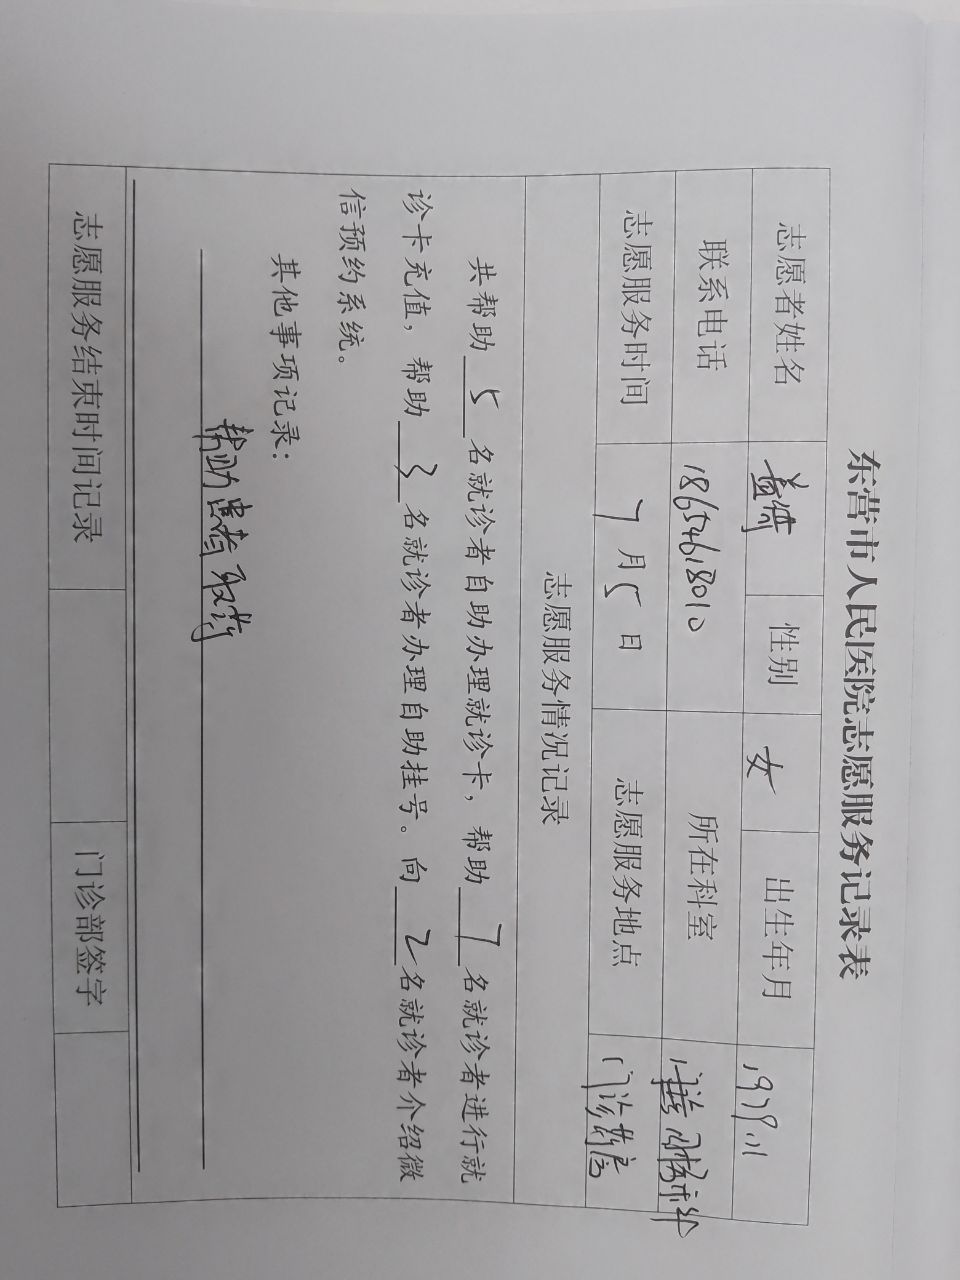 东营市人民医院志愿服务记录表
志愿者姓名 盖倩 性别 女 出生年月 1979.11
联系电话 18654618010 所在科室
志愿服务时间 7月5日 志愿服务地点 门诊药房
志愿服务情况记录
共帮助 5 名就诊者自助办理就诊卡，帮助 7 名就诊者进行就
诊卡充值，帮助 3 名就诊者办理自助挂号。向 2 名就诊者介绍微
信预约系统。
其他事项记录：
帮助患者取药
志愿服务结束时间记录 门诊部签字